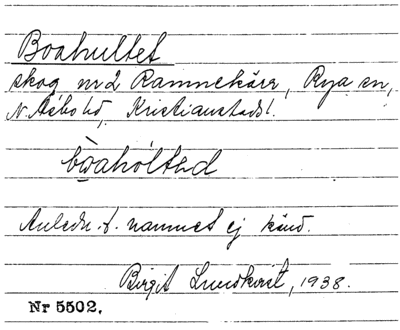 Boahultet
skog nr 2 Ramnekärr, Rya sn,
N. Åsbo hd, Kristianstads l.
bòahòltəd
Anledn. t. namnet ej känd.
Birgit Lundkvist, 1938.
Nr 5502.